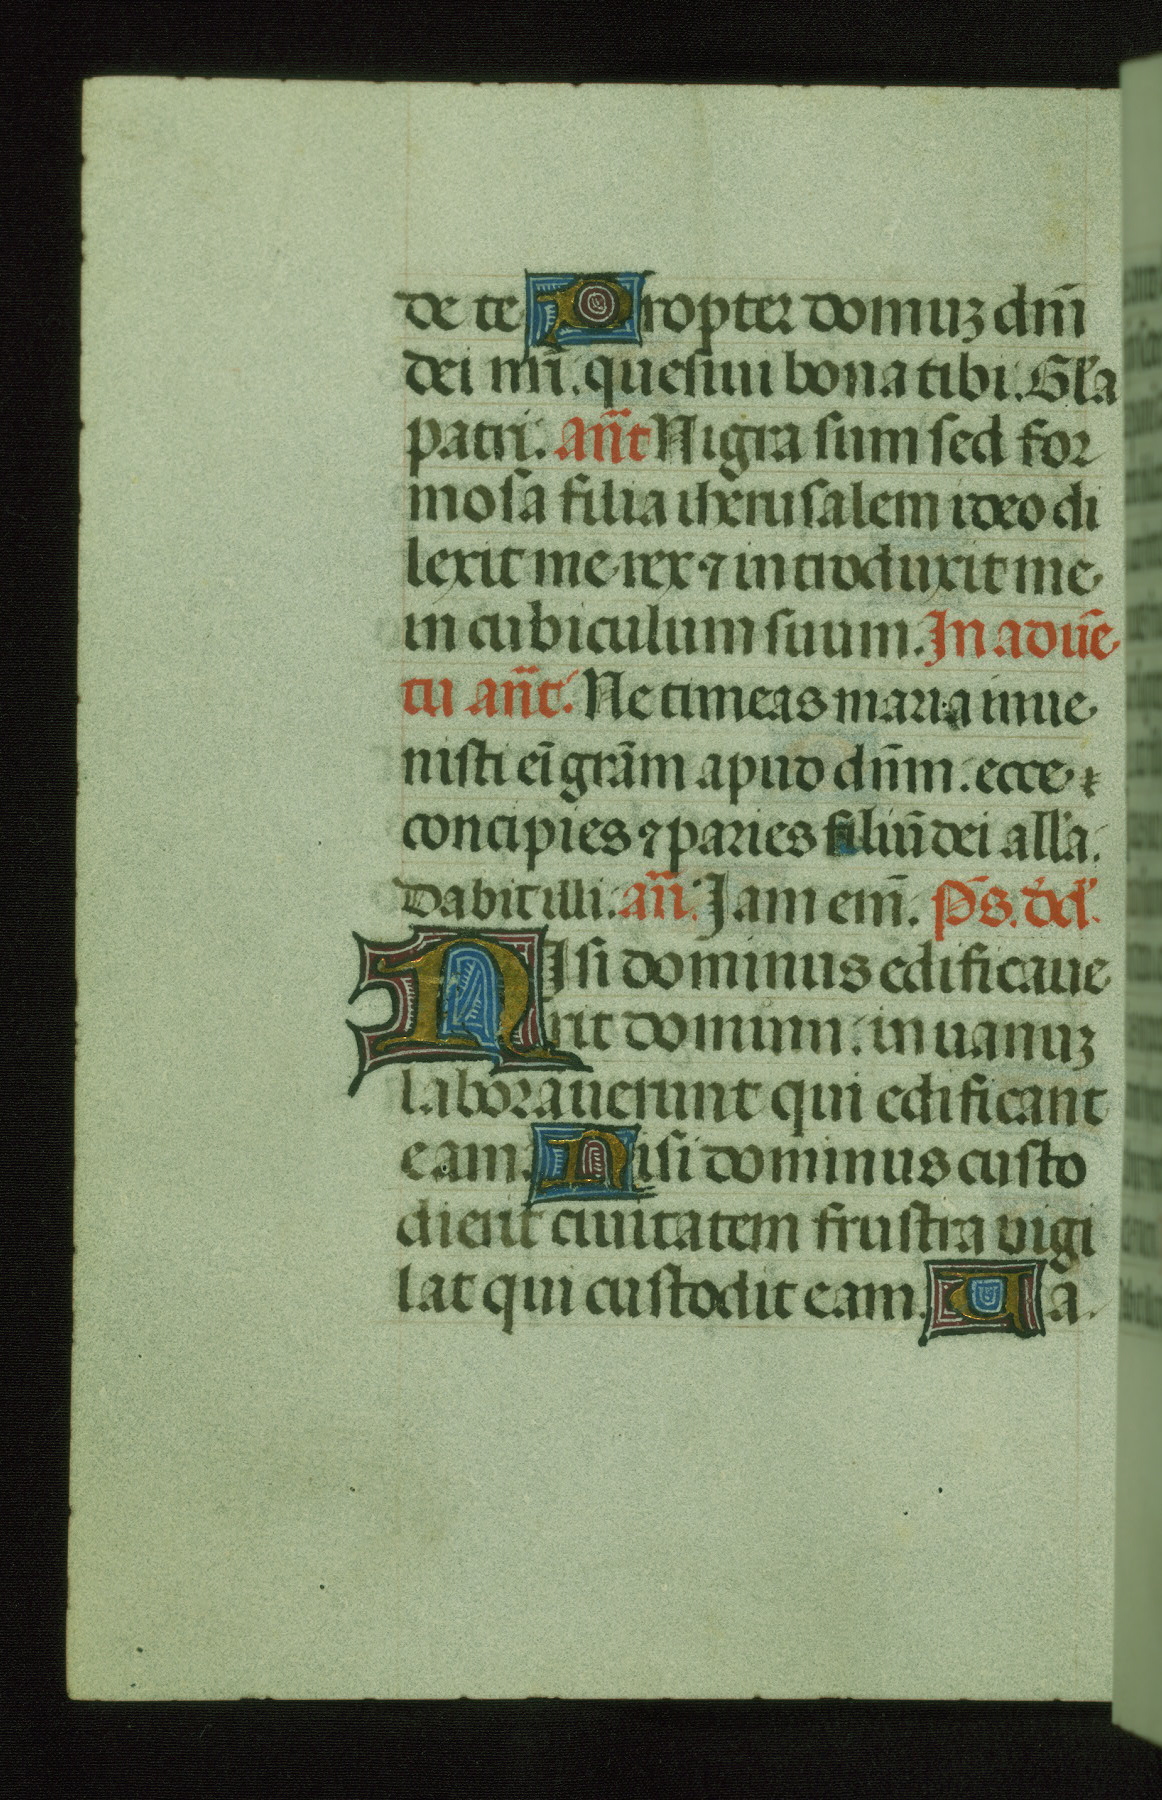 de te Propter domuz dnī
dei mī. quesiui bona tibi. Gl'a
patri. añt Nigra sum sed for
mosa filia iherusalem ideo di
lexit me rex ⁊ introduxit me
in cubiculum suum. In aduē
tu añt. Ne timeas maria inue
nisti eī grām apud dn̄m. ecce
concipies ⁊ paries filiū dei all'a.
Dabit illi. añ. Jam em̄. Ps. dd'.
Nisi dominus edificaue
rit domum. in uanuz
laborauerunt qui edificant
eam. Nisi dominus custo
dierit ciuitatem frustra uigi
lat qui custodit eam. Ua